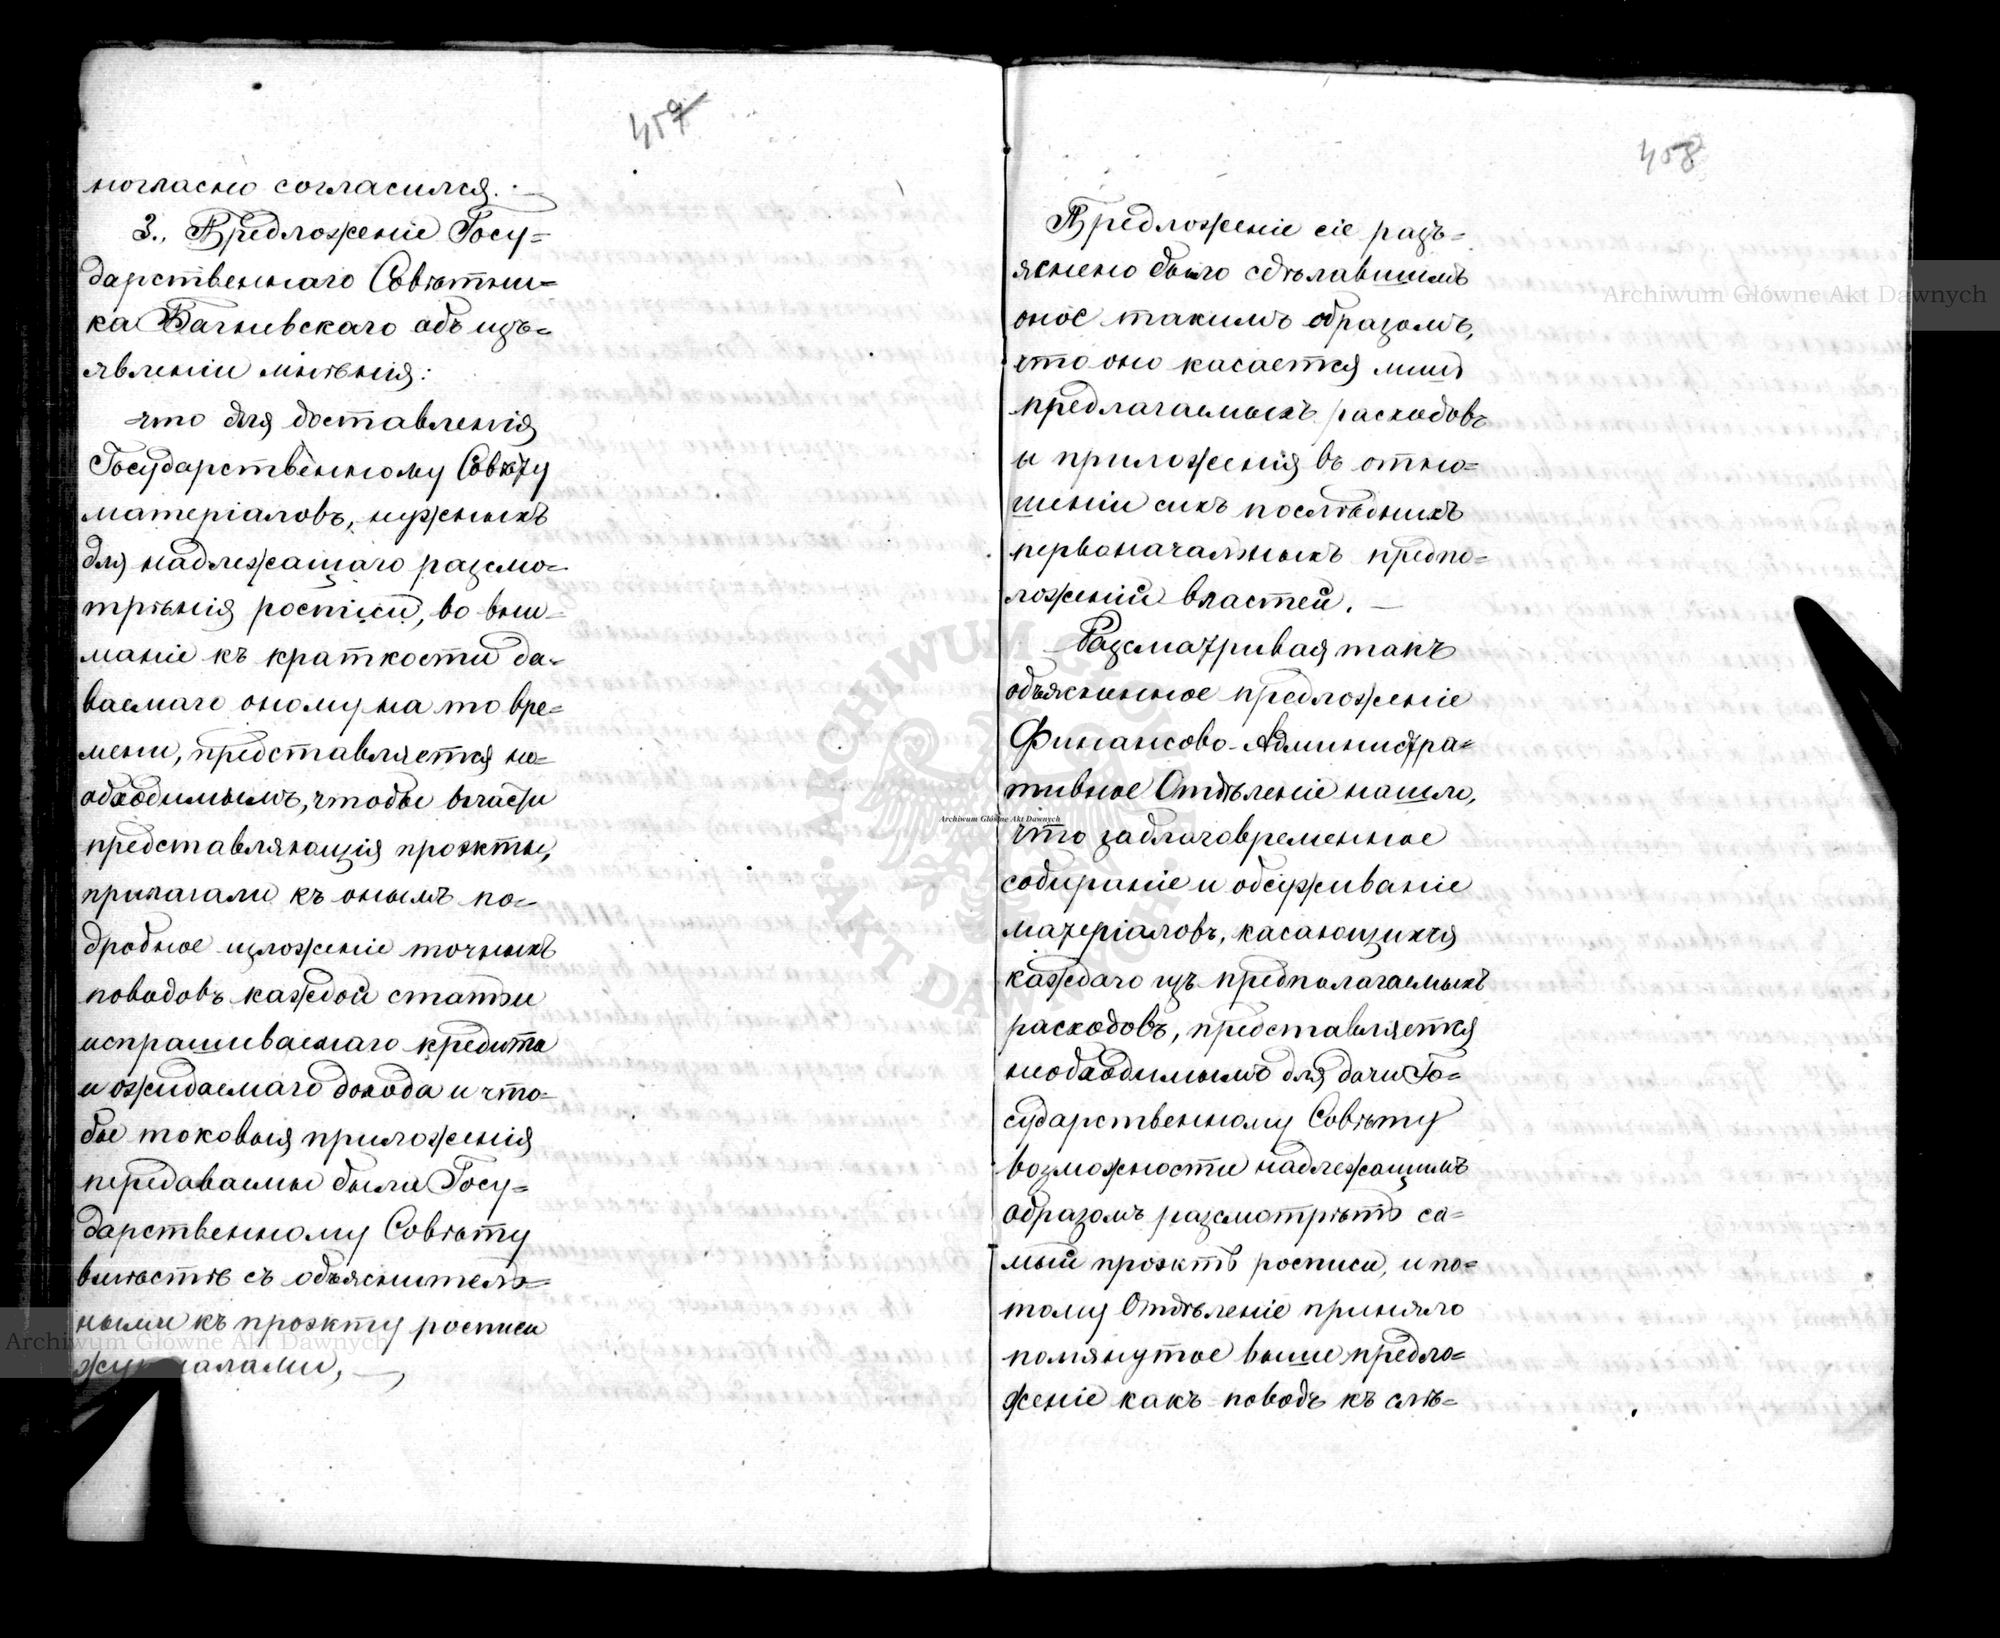 457
ногласно согласился. —
3., Предложеніе Госу=
дарственнаго Совѣтни=
ка Багневскаго объ изъ=
явленіи мнѣнія:
что для доставленія
Государственному Совѣту
матеріаловъ, нужныхъ
для надлежащаго разсмо=
трѣнія росписи, во вни=
маніе къ краткости да=
ваемаго оному на то вре=
мени, представляется не=
обходимымъ, чтобы власти
представляющія проэкты,
прилагали къ онымъ по=
дробное изложеніе точныхъ
поводовъ каждой статьи
испрашиваемаго кредита
и ожидаемаго дохода и что=
бы таковыя приложенія
передаваемы были Госу=
дарственному Совѣту
вмѣстѣ съ объяснитель=
ными къ проэкту росписи
журналами, —
458
Предложеніе сіе разъ=
яснено было сдѣлавшимъ
оное такимъ образомъ,
что оно касается лишь
предлагаемыхъ расходовъ
и приложенія въ отно=
шеніи сихъ послѣднихъ
первоначальныхъ предпо=
ложеній властей. —
Разсматривая такъ
объясненное предложеніе
Финансово-Администра=
тивное Отдѣленіе нашло,
что заблаговременное
собираніе и обсуживаніе
матеріаловъ, касающихся
каждаго изъ предполагаемыхъ
расходовъ, представляется
необходимымъ для дачи Го=
сударственному Совѣту
возможности надлежащимъ
образомъ разсмотрѣть са=
мый проэктъ росписи, и по=
тому Отдѣленіе приняло
помянутое выше предло=
женіе какъ поводъ къ слѣ=
Archiwum Główne Akt Dawnych
Archiwum Główne Akt Dawnych
Archiwum Główne Akt Dawnych
ARCHIWUM GŁÓWNE AKT DAWNYCH